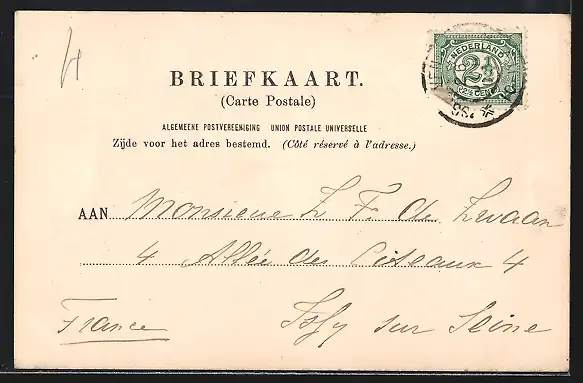 BRIEFKAART.
(Carte Postale)
ALGEMEENE POSTVEREENIGING UNION POSTALE UNIVERSELLE
Zijde voor het adres bestemd. (Côté réservé à l'adresse.)
NEDERLAND
2½
2½ CENT
AAN Monsieur L F. de Zwaan
4 Allée des Coteaux 4
France Issy sur Seine